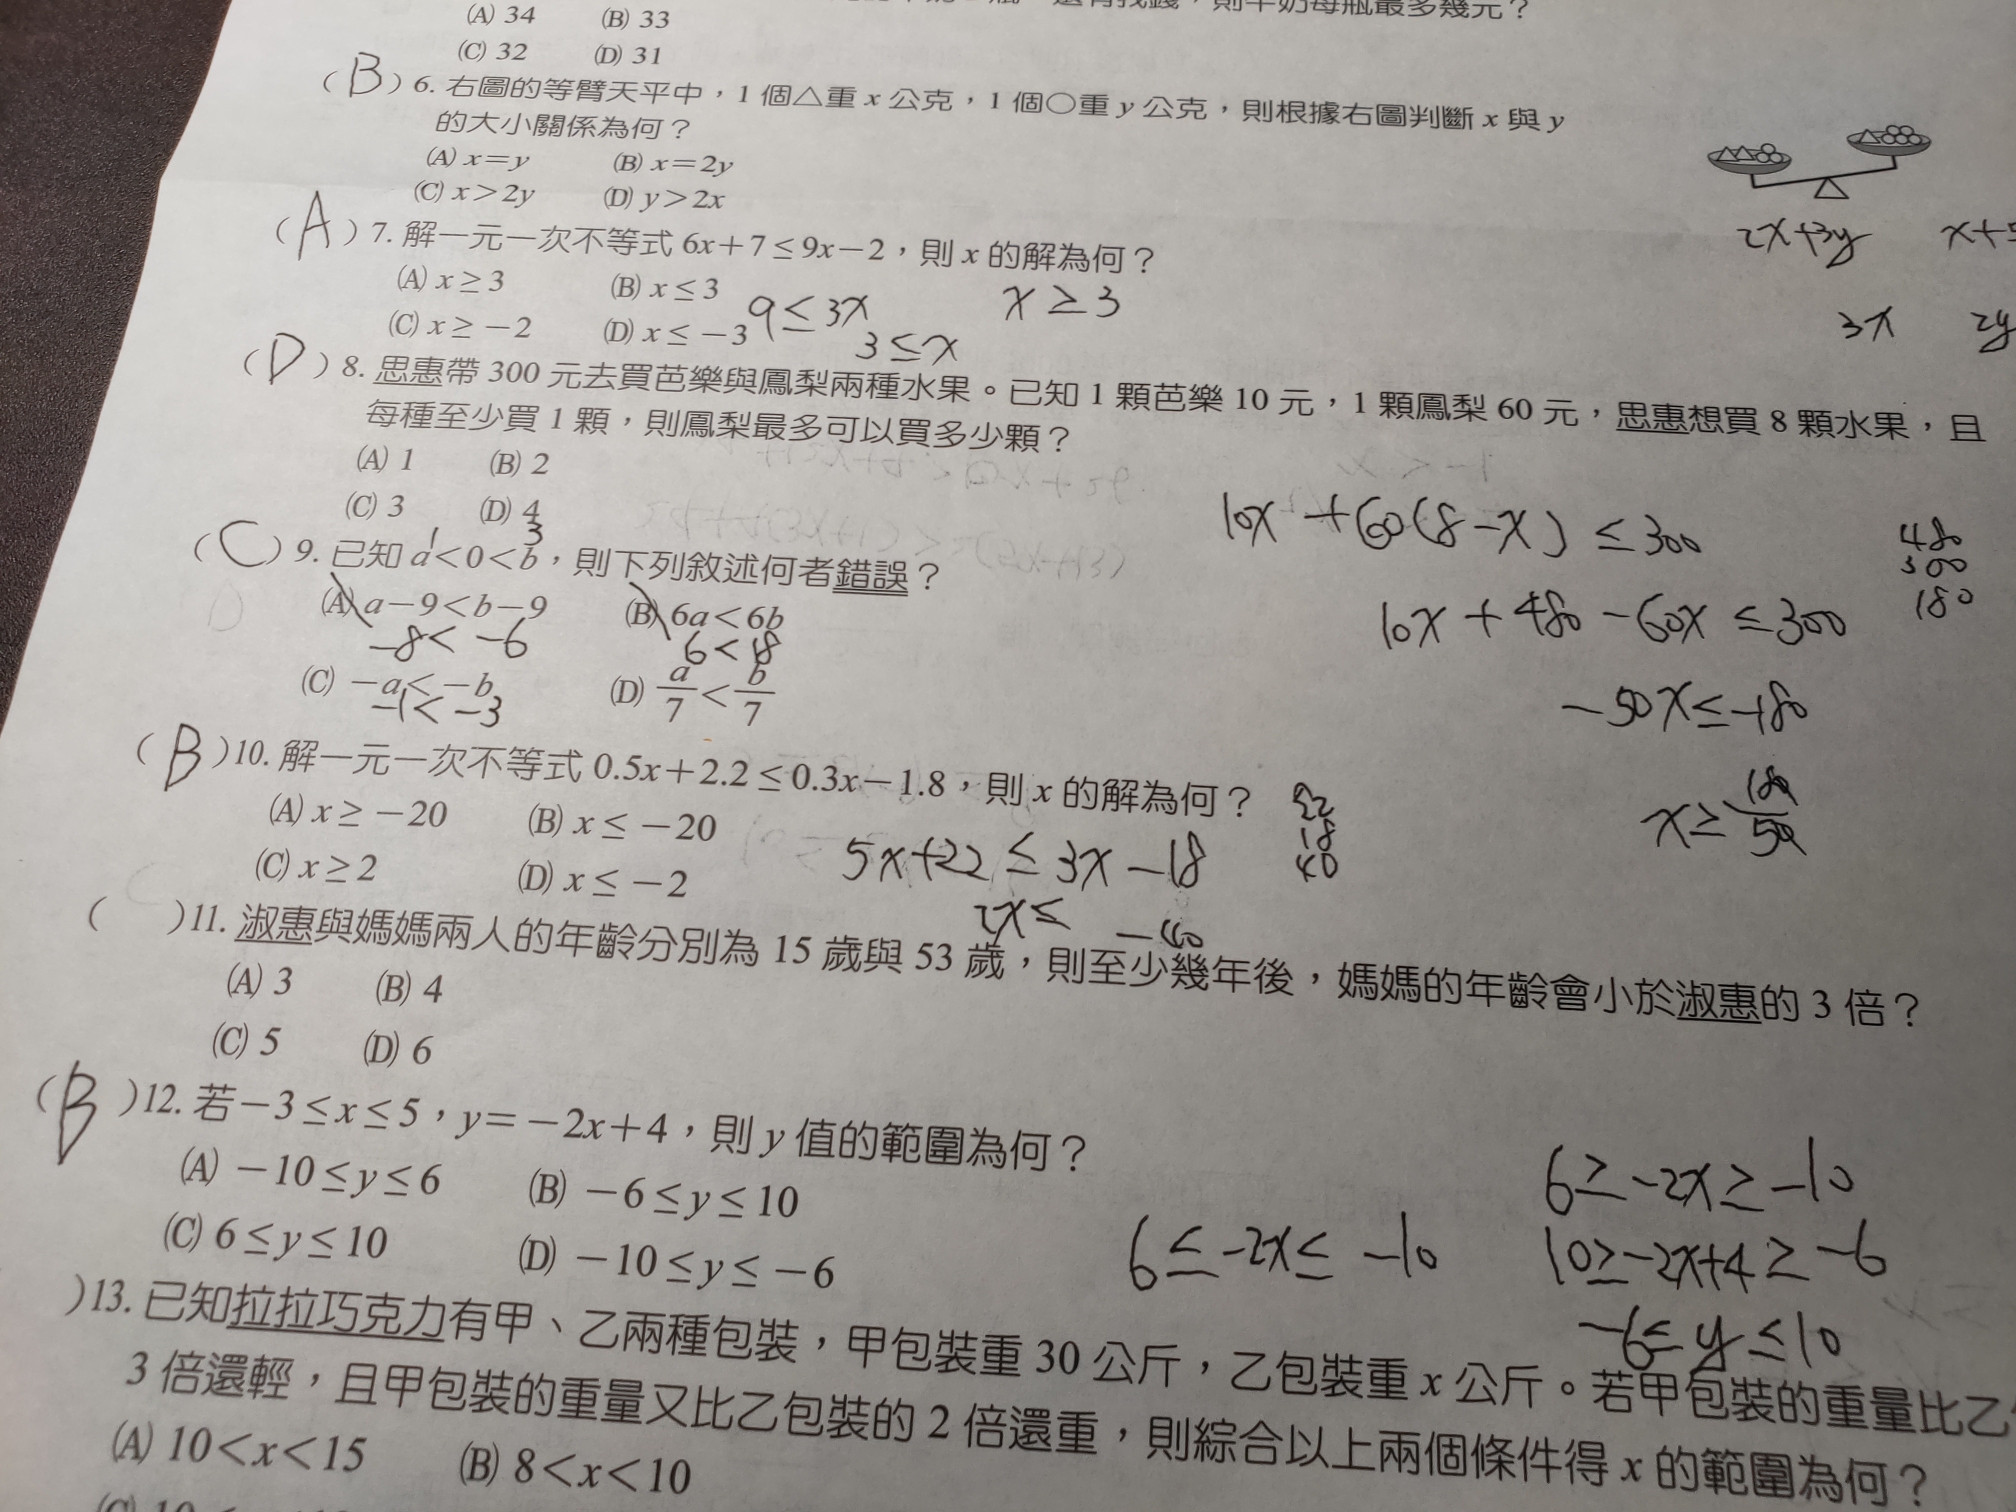 則牛奶每瓶最多幾元？
(A) 34 (B) 33
(C) 32 (D) 31
( B ) 6. 右圖的等臂天平中，1 個△重 x 公克，1 個○重 y 公克，則根據右圖判斷 x 與 y
的大小關係為何？
(A) x＝y (B) x＝2y
(C) x＞2y (D) y＞2x
2x+3y x+5
3x 2y
( A ) 7. 解一元一次不等式 6x＋7≤9x－2，則 x 的解為何？
(A) x≥3 (B) x≤3
9≤3x x≥3
(C) x≥－2 (D) x≤－3
3≤x
( D ) 8. 思惠帶 300 元去買芭樂與鳳梨兩種水果。已知 1 顆芭樂 10 元，1 顆鳳梨 60 元，思惠想買 8 顆水果，且
每種至少買 1 顆，則鳳梨最多可以買多少顆？
(A) 1 (B) 2
(C) 3 (D) 4
10x+60(8-x)≤300
480
300
180
10x+480-60x≤300
-50x≤-180
x≥180/50
1 3
( C ) 9. 已知 a＜0＜b，則下列敘述何者錯誤？
(A) a－9＜b－9 (B) 6a＜6b
-8<-6 6<18
(C) －a＜－b (D) a/7＜b/7
-1<-3
( B )10. 解一元一次不等式 0.5x＋2.2≤0.3x－1.8，則 x 的解為何？
(A) x≥－20 (B) x≤－20
(C) x≥2 (D) x≤－2
5x+22≤3x-18
22
18
40
2x≤ -40
( )11. 淑惠與媽媽兩人的年齡分別為 15 歲與 53 歲，則至少幾年後，媽媽的年齡會小於淑惠的 3 倍？
(A) 3 (B) 4
(C) 5 (D) 6
( B )12. 若－3≤x≤5，y＝－2x＋4，則 y 值的範圍為何？
(A) －10≤y≤6 (B) －6≤y≤10
(C) 6≤y≤10 (D) －10≤y≤－6
6≤-2x≤-10
6≥-2x≥-10
10≥-2x+4≥-6
-6≤y≤10
)13. 已知拉拉巧克力有甲、乙兩種包裝，甲包裝重 30 公斤，乙包裝重 x 公斤。若甲包裝的重量比乙
3 倍還輕，且甲包裝的重量又比乙包裝的 2 倍還重，則綜合以上兩個條件得 x 的範圍為何？
(A) 10＜x＜15 (B) 8＜x＜10